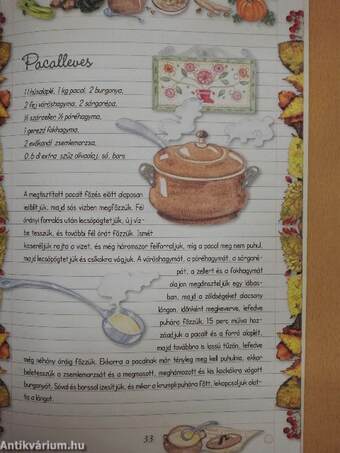 Pacalleves
1 l húsalaplé, 1 kg pacal, 2 burgonya,
2 fej vöröshagyma, 2 sárgarépa,
½ szárzeller, ½ póréhagyma,
1 gerezd fokhagyma,
2 evőkanál zsemlemorzsa,
0,6 dl extra szűz olívaolaj, só, bors
A megtisztított pacalt főzés előtt alaposan
leöblítjük, majd sós vízben megfőzzük. Fél
órányi forralás után lecsöpögtetjük, új víz-
be tesszük, és további fél órát főzzük. Ismét
kicseréljük rajta a vizet, és még háromszor felforraljuk, míg a pacal meg nem puhul,
majd lecsöpögtetjük és csíkokra vágjuk. A vöröshagymát, a póréhagymát, a sárgaré-
pát, a zellert és a fokhagymát
olajon megdinszteljük egy lábas-
ban, majd a zöldségeket alacsony
lángon, időnként megkeverve, lefedve
puhára főzzük. 15 perc múlva hoz-
záadjuk a pacalt és a forró alaplét,
majd továbbra is lassú tűzön, lefedve
még néhány óráig főzzük. Ekkorra a pacalnak már tényleg meg kell puhulnia, ekkor
beletesszük a zsemlemorzsát és a megmosott, meghámozott és kis kockákra vágott
burgonyát. Sóval és borssal ízesítjük, és mikor a krumpli puhára főtt, lekapcsoljuk alat-
ta a lángot.
33
Antikvárium.hu